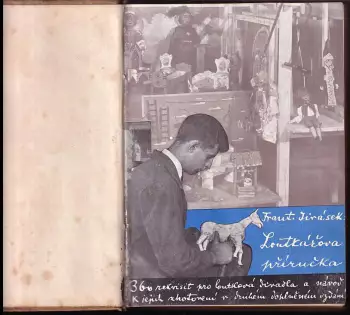 Frant. Jirásek
Loutkářova
příručka
360 rekvisit pro loutková divadla a návod
k jejich zhotovení v druhém doplněném vydání